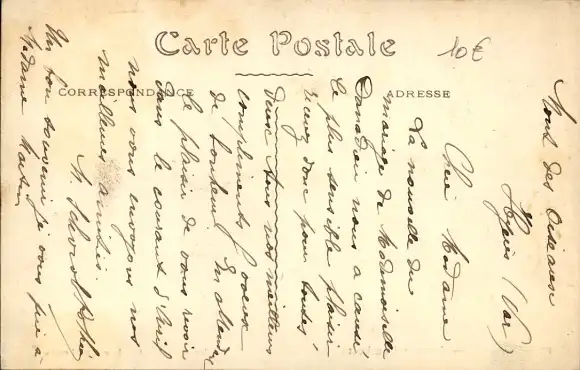 Carte Postale
10€
CORRESPONDANCE
ADRESSE
Mont des Oiseaux
Hyères (Var)
Chère Madame
La nouvelle du
mariage de Mademoiselle
nous a causé,
le plus sensible plaisir
donc pour toutes
deux tous nos meilleurs
compliments & voeux
de bonheur. En attendant
le plaisir de vous revoir
dans le courant d'Avril
nous vous envoyons nos
meilleures amitiés.
Un bon souvenir je vous prie à
Madame